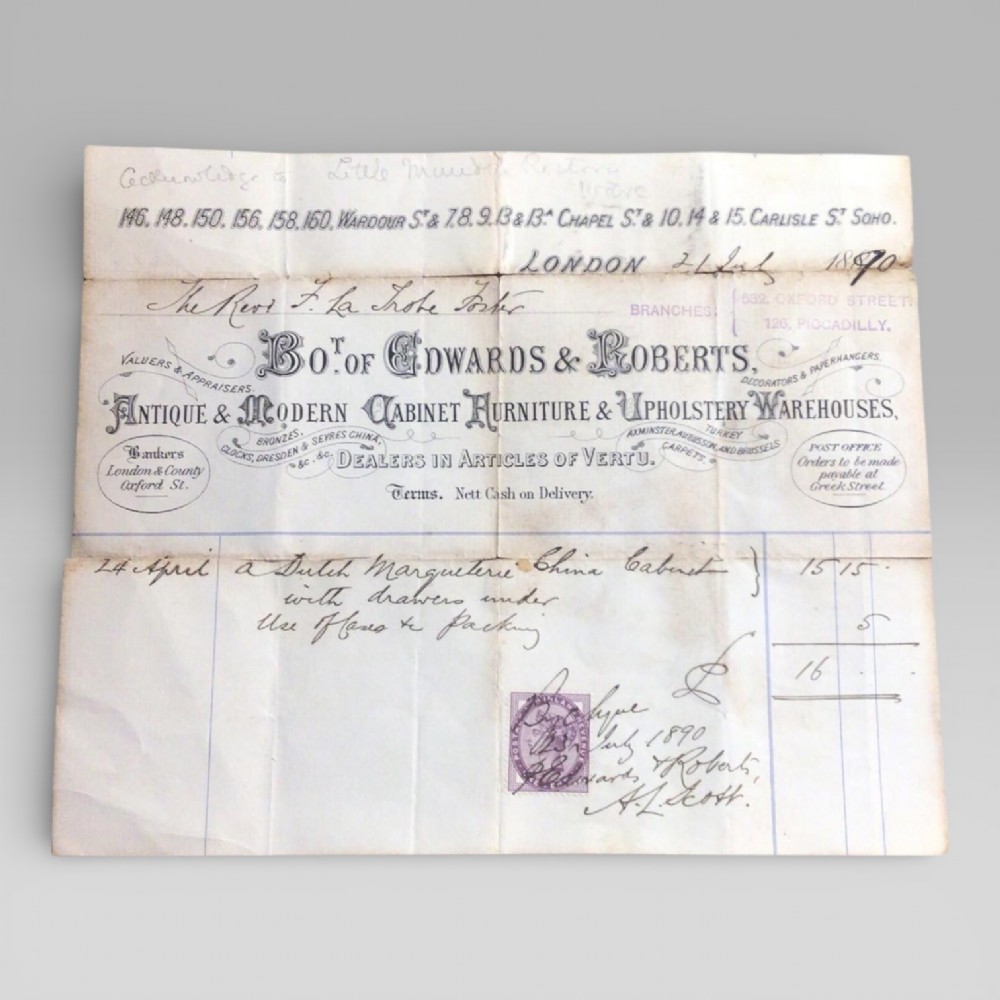 Acknowledge
Little Rectory
146, 148, 150, 156, 158, 160, WARDOUR ST & 7.8.9.13 & 13A CHAPEL ST & 10, 14 & 15, CARLISLE ST SOHO.
LONDON 21 July 1890
The Revd F. La Trobe Foster
BRANCHES: 532, OXFORD STREET.
126, PICCADILLY.
BOT. OF EDWARDS & ROBERTS,
VALUERS & APPRAISERS.
DECORATORS & PAPERHANGERS.
ANTIQUE & MODERN CABINET FURNITURE & UPHOLSTERY WAREHOUSES,
BRONZES,
CLOCKS, DRESDEN & SEVRES CHINA,
&c. &c.
DEALERS IN ARTICLES OF VERTU.
TURKEY
AXMINSTER, AUBUSSON, AND BRUSSELS
CARPETS.
Bankers
London & County
Oxford St.
POST OFFICE
Orders to be made
payable at
Greek Street
Terms. Nett Cash on Delivery.
24 April a Dutch Marqueterie China Cabinet 15 15 -
with drawers under
Use of Cases & Packing 5
£ 16 . .
By Cheque
23 July 1890
p Edwards & Roberts,
A. L. Scott.